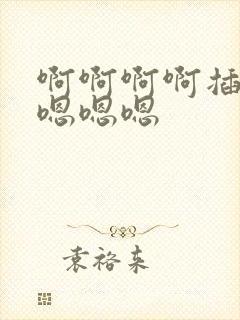 啊啊啊啊插
嗯嗯嗯
袁裕来